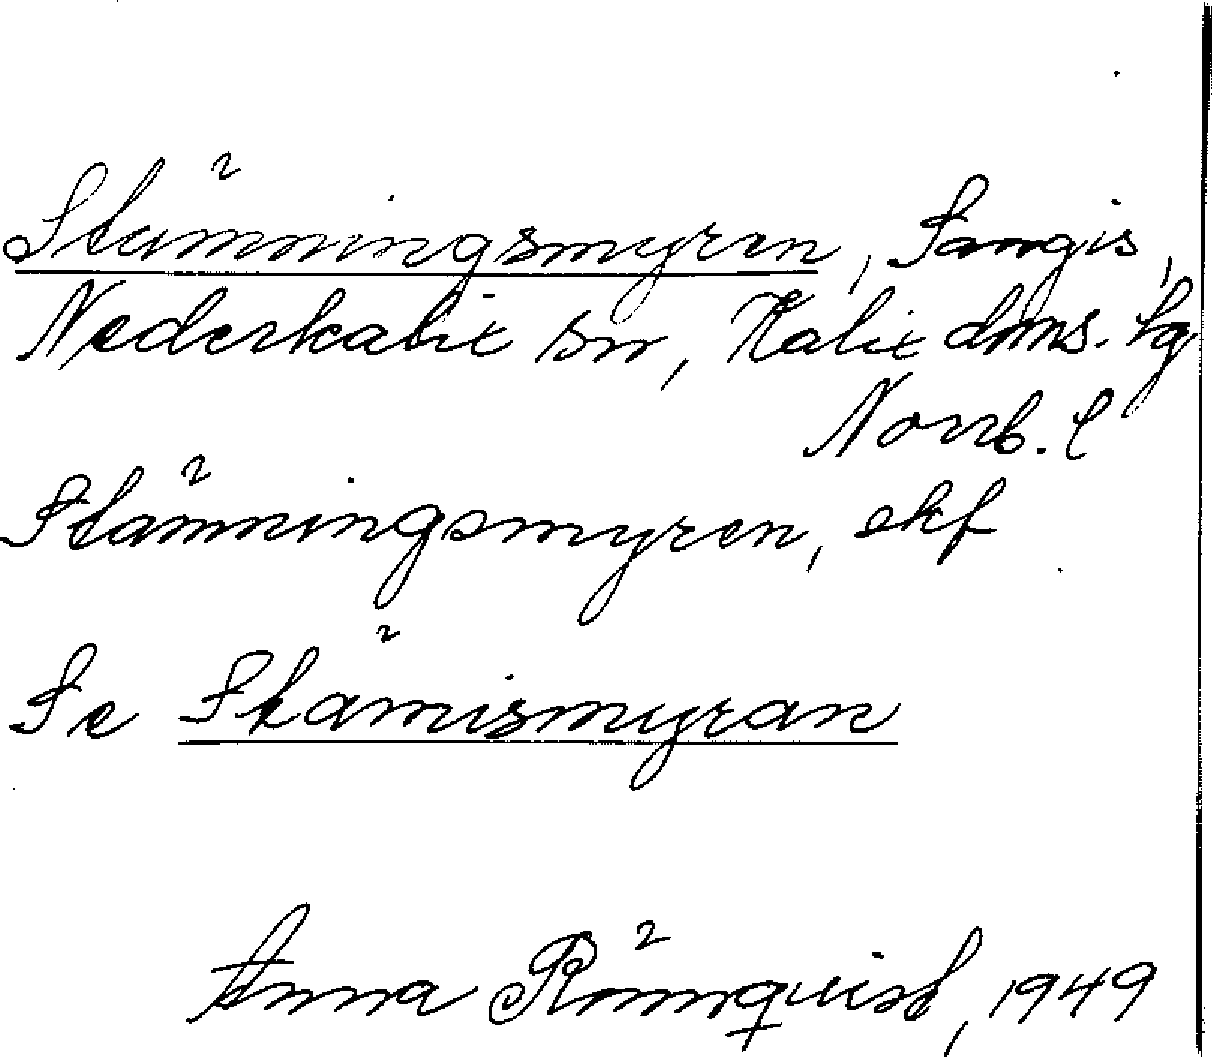 Stämningsmyren, Sangis,
Nederkalix sn, Kalix dms. lg
Norrb. l
Stämningsmyren, ekf
Se Skämismyran
Anna Rönnqvist, 1949